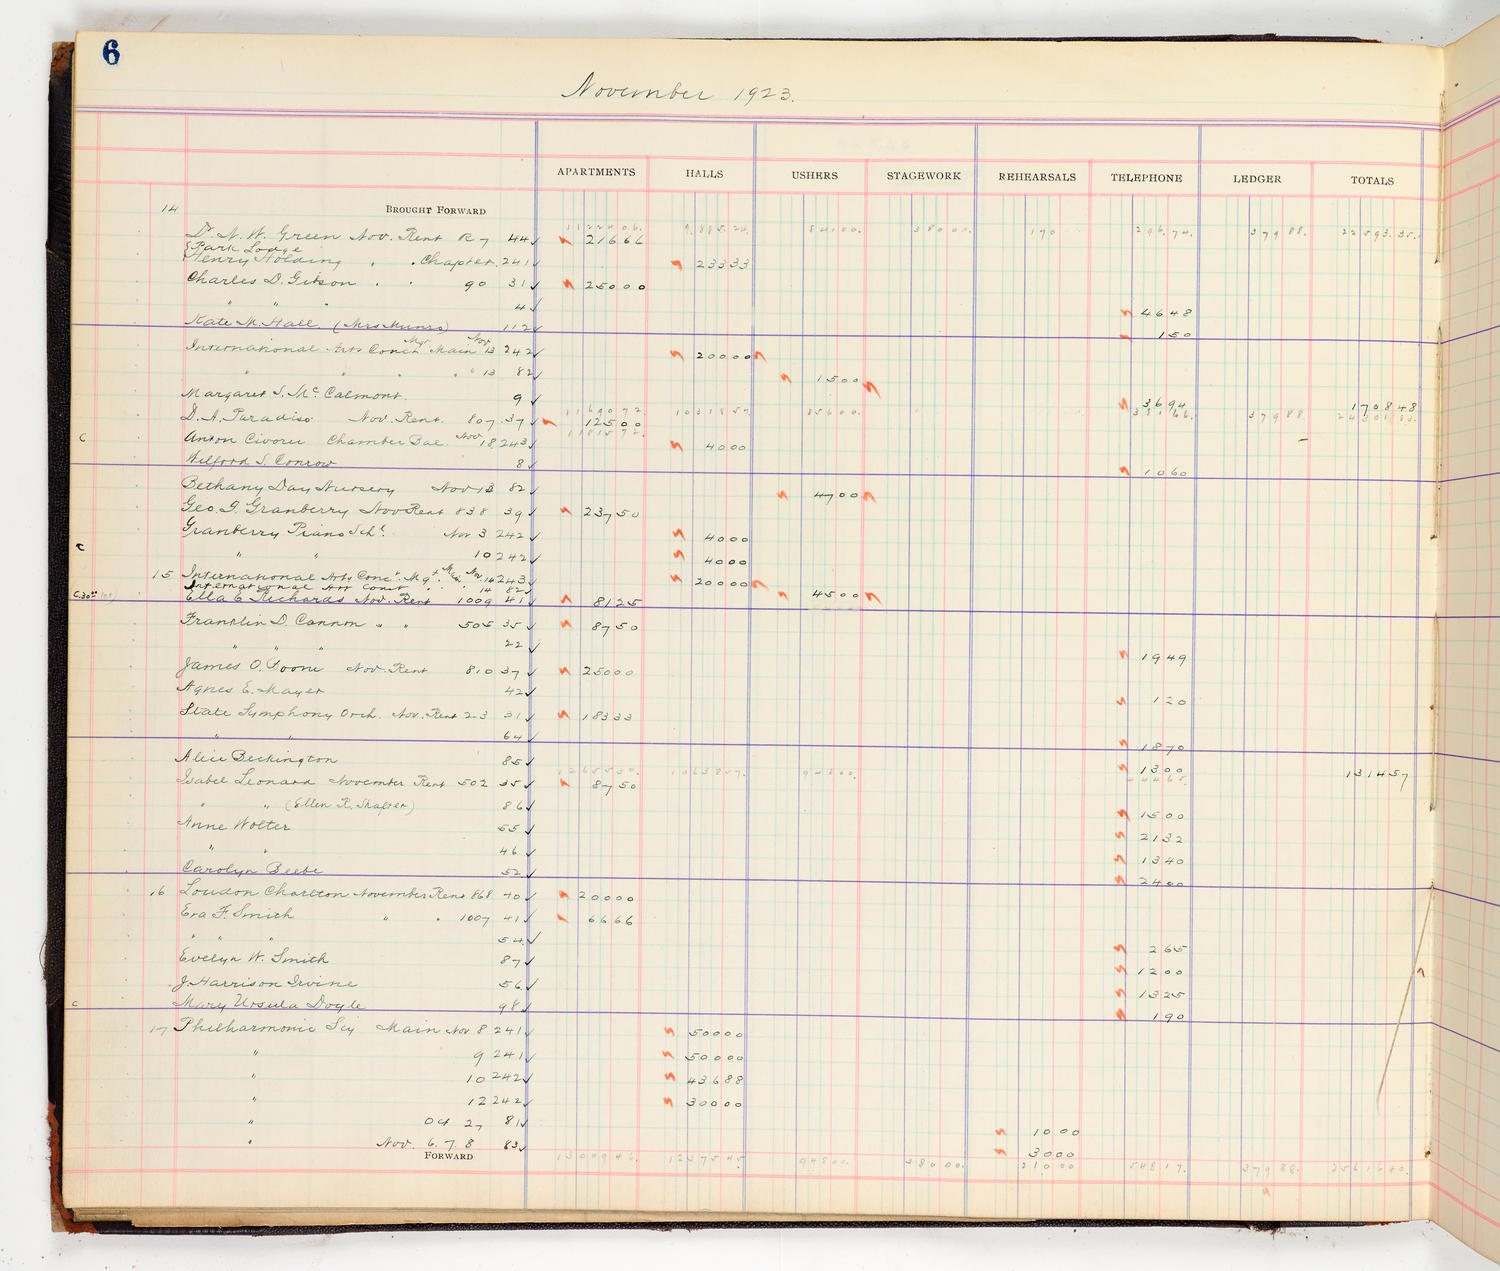 6
November 1923.
APARTMENTS HALLS USHERS STAGEWORK REHEARSALS TELEPHONE LEDGER TOTALS
14 BROUGHT FORWARD
Dr. N. W. Green Nov. Rent R 7 44 ✓ 21666
{Park Lodge
{Henry Holding " " Chapter. 241 ✓ 23333
Charles D. Gibson " " 90 31 ✓ 25000
" " " 4 ✓ 4648
Kate M. Hall. (Mrs Munro) 112 ✓ 150
International Arts Conct. Mgt. Main Nov 13 242 ✓ 20000
" " " " " 13 82 ✓ 1500
Margaret S. McCalmont. 9 ✓ 3694 170848
D. A. Paradiso. Nov. Rent. 807. 37 ✓ 12500
C Anton Civoru Chamber Bal. Nov. 18. 243 ✓ 4000
Wilford S. Conrow 8 ✓ 1060
Bethany Day Nursery Nov 13 82 ✓ 4700
Geo. G. Granberry Nov Rent 838 39 ✓ 23750
Granberry Piano Schl. Nov 3 242 ✓ 4000
C " " 10 242 ✓ 4000
15 International Arts Conct. Mgt. Main Nov 14 243 ✓ 20000
International Art Conct. " " 14 82 ✓ 4500
C.30.00 Ella E. Richards Nov. Rent 1009 41 ✓ 8125
Franklin D. Cannon " " 505 35 ✓ 8750
" " " 22 ✓ 1949
James O. Boone Nov. Rent 810 37 ✓ 25000
Agnes E. Mayer 42 ✓ 120
State Symphony Orch. Nov. Rent 23 31 ✓ 18333
" " 64 ✓ 1870
Alice Beckington 85 ✓ 1300 131457
Isabel Leonard November Rent 502 35 ✓ 8750
" " (Ellen R. Shafter) 86 ✓ 1500
Anne Wolter 55 ✓ 2132
" " 46 ✓ 1340
Carolyn Beebe 52 ✓ 2400
16 Loudon Charlton November Rent 868 40 ✓ 20000
Eva F. Smith " " 1007 41 ✓ 6666
" " " 54 ✓ 265
Evelyn W. Smith 87 ✓ 1200
J. Harrison Irvine 56 ✓ 1325
C Mary Ursula Doyle 98 ✓ 190
17 Philharmonic Scy Main Nov 8 241 ✓ 50000
" 9 241 ✓ 50000
" 10 242 ✓ 43688
" 12 242 ✓ 30000
" Oct 27 81 ✓ 1000
" Nov. 6. 7. 8 83 ✓ 3000
FORWARD 1300946. 1237545 94800. 38000. 21000 54817. 37988. 2561640.